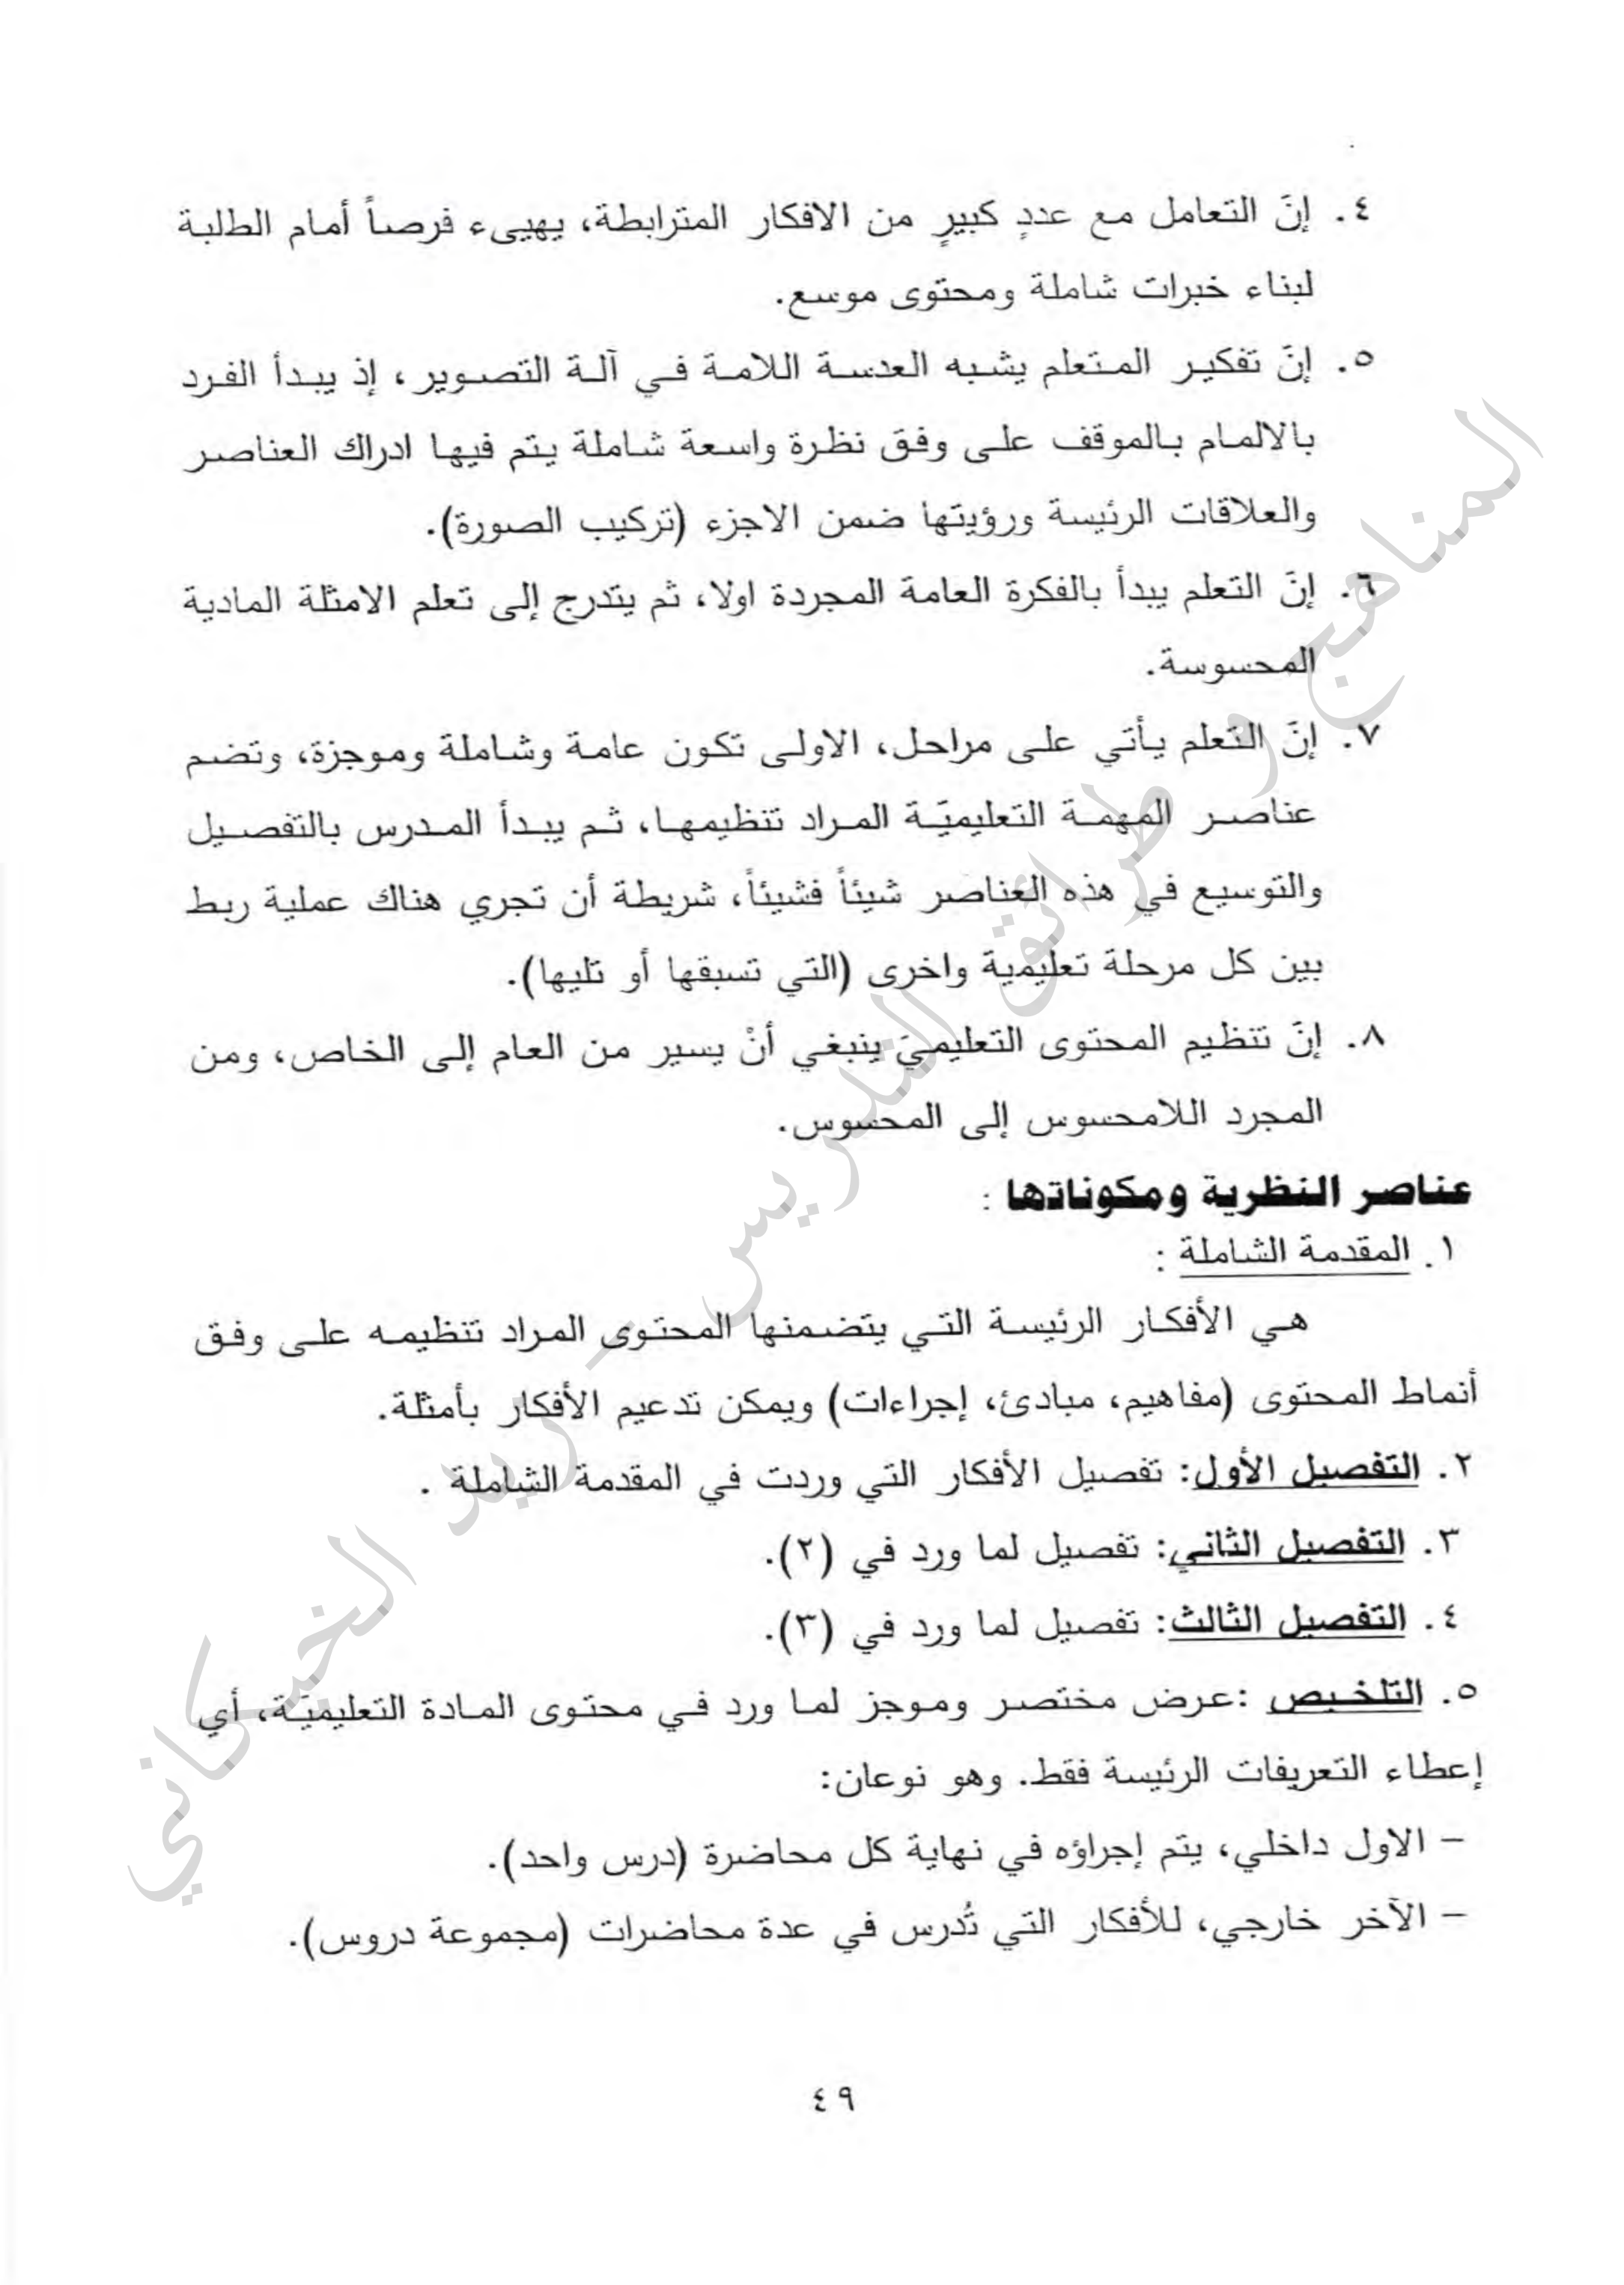 ٤. إنَ التعامل مع عددٍ كبيرٍ من الافكار المترابطة، يهيىء فرصاً أمام الطلبة
لبناء خبرات شاملة ومحتوى موسع.
٥. إنَ تفكير المتعلم يشبه العدسة اللامة في آلة التصوير، إذ يبدأ الفرد
بالالمام بالموقف على وفق نظرة واسعة شاملة يتم فيها ادراك العناصر
والعلاقات الرئيسة ورؤيتها ضمن الاجزء (تركيب الصورة).
٦. إنَ التعلم يبدأ بالفكرة العامة المجردة اولا، ثم يتدرج إلى تعلم الامثلة المادية
المحسوسة.
٧. إنَ التعلم يأتي على مراحل، الاولى تكون عامة وشاملة وموجزة، وتضم
عناصر المهمة التعليميَة المراد تنظيمها، ثم يبدأ المدرس بالتفصيل
والتوسيع في هذه العناصر شيئاً فشيئاً، شريطة أن تجري هناك عملية ربط
بين كل مرحلة تعليمية واخرى (التي تسبقها أو تليها).
٨. إنَ تنظيم المحتوى التعليميَ ينبغي أنْ يسير من العام إلى الخاص، ومن
المجرد اللامحسوس إلى المحسوس.
عناصر النظرية ومكوناتها :
١. المقدمة الشاملة :
هي الأفكار الرئيسة التي يتضمنها المحتوى المراد تنظيمه على وفق
أنماط المحتوى (مفاهيم، مبادئ، إجراءات) ويمكن تدعيم الأفكار بأمثلة.
٢. التفصيل الأول: تفصيل الأفكار التي وردت في المقدمة الشاملة .
٣. التفصيل الثاني: تفصيل لما ورد في (٢).
٤. التفصيل الثالث: تفصيل لما ورد في (٣).
٥. التلخيص :عرض مختصر وموجز لما ورد في محتوى المادة التعليميَة، أي
إعطاء التعريفات الرئيسة فقط. وهو نوعان:
– الاول داخلي، يتم إجراؤه في نهاية كل محاضرة (درس واحد).
– الآخر خارجي، للأفكار التي تُدرس في عدة محاضرات (مجموعة دروس).
٤٩
المناهج و طرائق التدريس - ريد الخيكاني